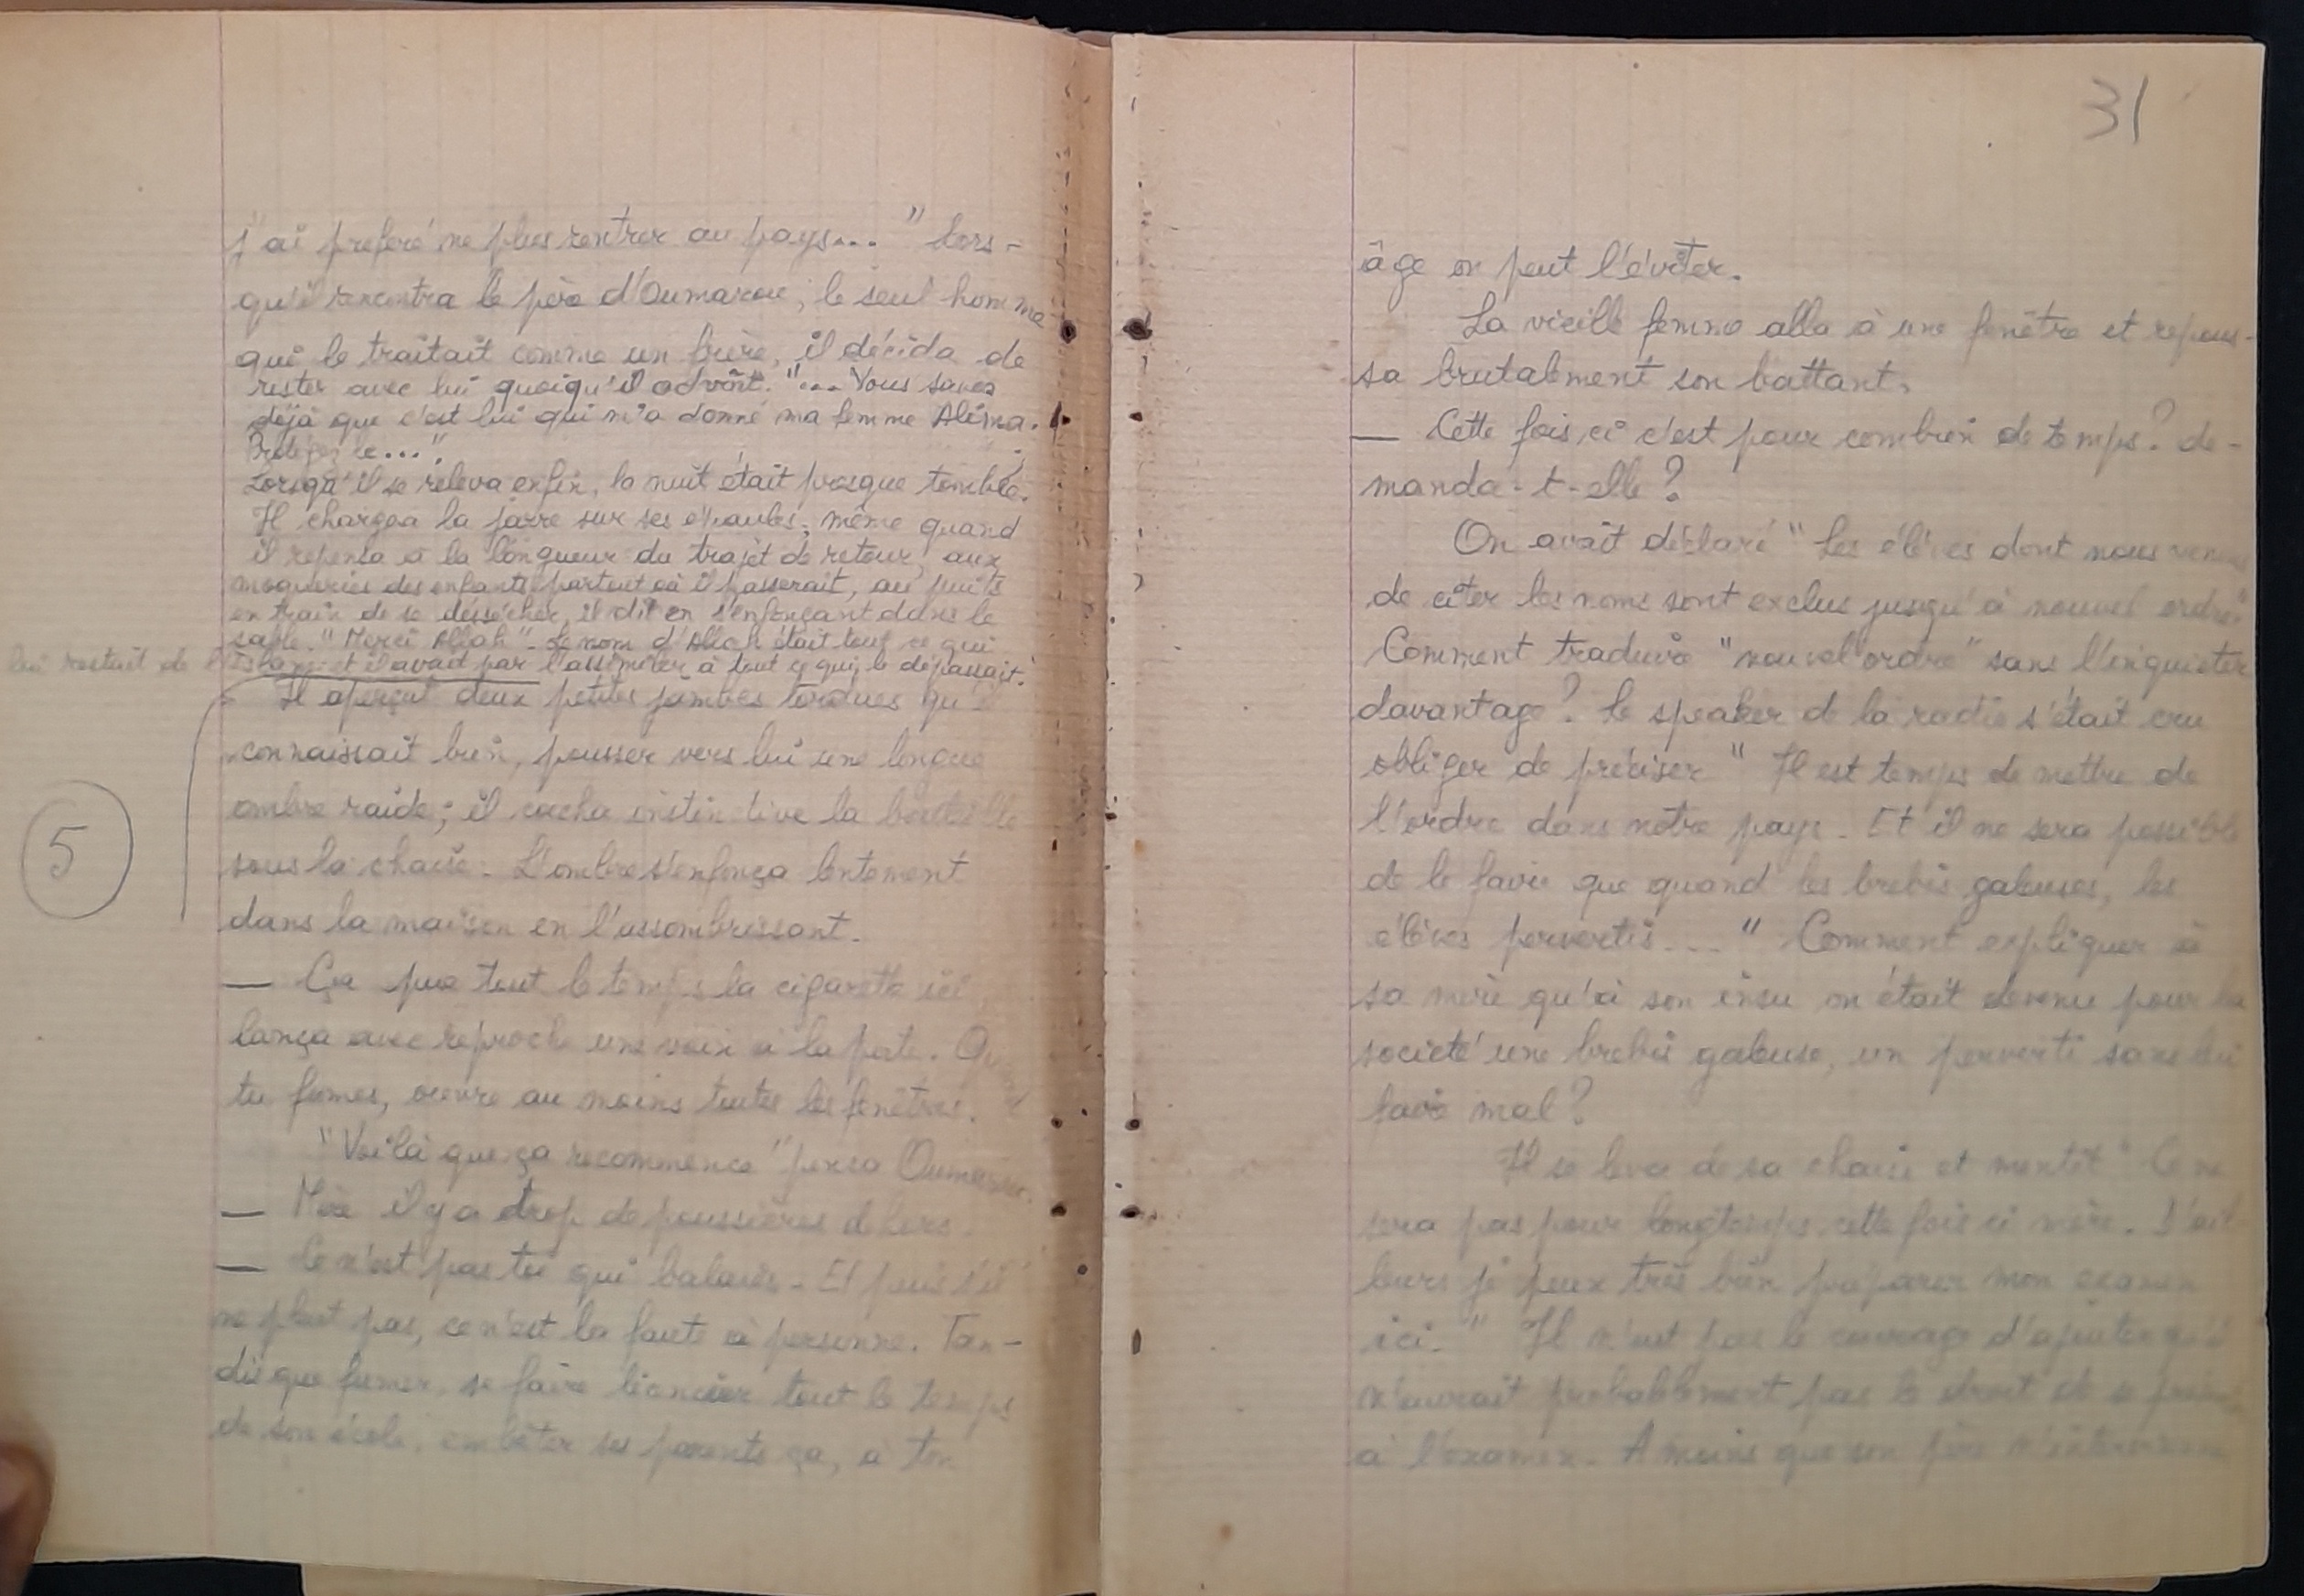 j'ai preferé ne plus rentrer au pays... " Lors-
qu'il rencontra le père d'Oumarou, le seul homme
qui le traitait comme un frère, il décida de
rester avec lui quoiqu'il advînt. "... Vous savez
déjà que c'est lui qui m'a donné ma femme Alima.
Protégez le..."
Lorsqu'il se releva enfin, la nuit était presque tombée.
Il chargea la jarre sur ses épaules; même quand
il repensa à la longueur du trajet de retour, aux
moqueries des enfants partout où il passerait, au puits
en train de se dessécher, il dit en s'enfonçant dans le
sable. "Merci Allah". Le nom d'Allah était tout ce qui
lui restait de l'Islam et il avait par l'assimiler à tout ce qui le dépassait.
Il aperçut deux petites jambes tordues qu'il
connaissait bien, pousser vers lui une longue
ombre raide; il cacha instinctive la bouteille
sous la chaise. L'ombre s'enfonça lentement
dans la maison en l'assombrissant.
5
— Ça pue tout le temps la cigarette ici,
lança avec reproche une voix à la porte. Quand
tu fumes, ouvre au moins toutes les fenêtres.
"Voilà que ça recommence" pensa Oumarou.
— Mère il y a trop de poussières dehors.
— Ce n'est pas toi qui balaies. Et puis s'il
ne pleut pas, ce n'est la faute à personne. Tan-
dis que fumer, se faire licencier tout le temps
de son école, embêter ses parents ça, à ton
31
âge on peut l'éviter.
La vieille femme alla à une fenêtre et repous-
sa brutalement son battant.
— Cette fois ci c'est pour combien de temps? de-
manda-t-elle?
On avait déclaré "Les élèves dont nous venons
de citer les noms sont exclus jusqu'à nouvel ordre"
Comment traduire "nouvel ordre" sans l'inquieter
davantage? Le speaker de la radio s'était cru
obliger de préciser " Il est temps de mettre de
l'ordre dans notre pays. Et il ne sera possible
de le faire que quand les brebis galeuses, les
élèves pervertis..." Comment expliquer à
sa mère qu'à son insu on était devenu pour la
societé une brebis galeuse, un perverti sans lui
faire mal?
Il se leva de sa chaise et mentit " Ce ne
sera pas pour longtemps cette fois ci mère. D'ail-
leurs je peux très bien préparer mon examen
ici." Il n'eut pas le courage d'ajouter qu'il
n'aurait probablement pas le droit de se
à l'examen. A moins que son père n'intervienne